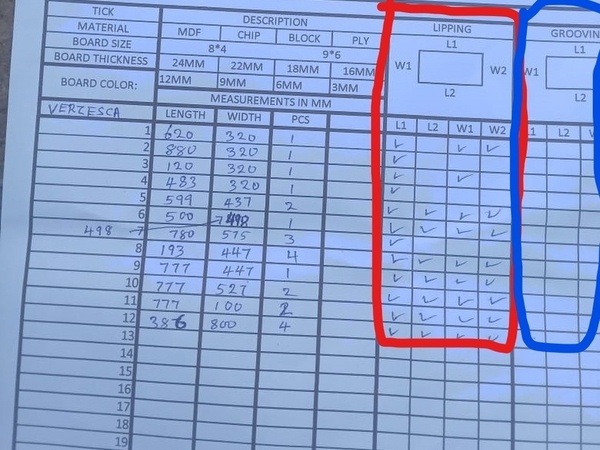 TICK DESCRIPTION LIPPING GROOVIN
MATERIAL MDF CHIP BLOCK PLY L1 L1
BOARD SIZE 8*4 9*6
BOARD THICKNESS 24MM 22MM 18MM 16MM W1 W2 W1
BOARD COLOR: 12MM 9MM 6MM 3MM L2 L2
MEASUREMENTS IN MM
VERZESCA LENGTH WIDTH PCS L1 L2 W1 W2 L1 L2
1 620 320 1 ✓ ✓ ✓
2 880 320 1 ✓
3 120 320 1 ✓ ✓
4 483 320 1 ✓
5 599 437 2 ✓ ✓ ✓ ✓
6 500 1 ✓ ✓ ✓ ✓
498 7 780 575 3 ✓
8 193 447 4 ✓ ✓ ✓ ✓
9 777 447 1 ✓ ✓ ✓ ✓
10 777 527 2 ✓ ✓ ✓ ✓
11 777 100 2 ✓ ✓ ✓ ✓
12 386 800 4 ✓ ✓ ✓ ✓
13
14
15
16
17
18
19